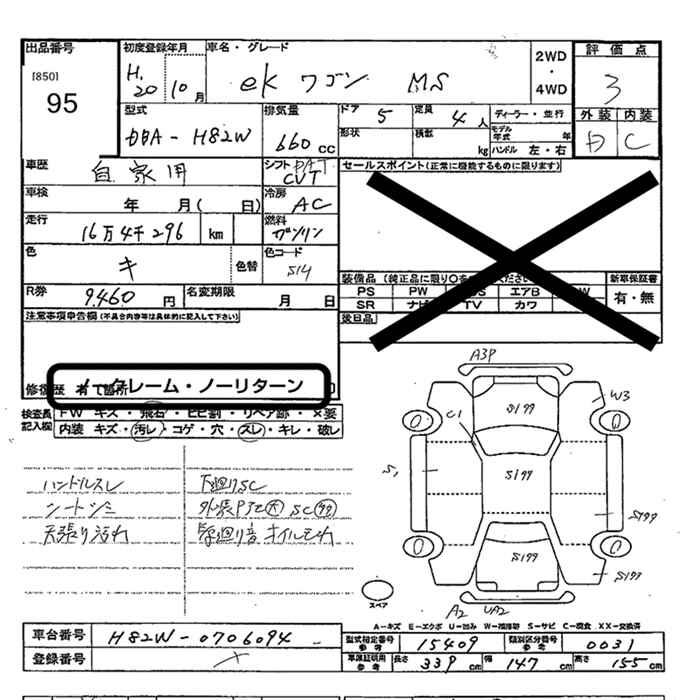 出品番号 初度登録年月 車名・グレード 2WD・4WD 評価点
[850]
95
H.20 10月 ekワゴン MS 3
型式 排気量 ドア 5 定員 4人 ディーラー・並行 外装 内装
DBA-H82W 660cc 形状 積載 kg モデル年式 年 ハンドル 左・右 D C
車歴 自家用 シフト CVT セールスポイント(正常に機能するものに限ります)
車検 年 月( 日) 冷房 AC
走行 16万4千296 km 燃料 ガソリン
色 キ 色替 色コード S14
装備品(純正品に限り〇を 新車保証書
PS PW エアB 有・無
SR ナビ TV カワ
R券 9,460円 名変期限 月 日
後日品
注意事項申告欄(不具合内容等は具体的に記入して下さい)
修復歴 ノークレーム・ノーリターン
検査員記入欄 FW キズ・飛石・ヒビ割・リペア跡・×要
内装 キズ・汚レ・コゲ・穴・スレ・キレ・破レ
ハンドルスレ 下廻りSC
シートシミ
天張り汚れ
A3P
W3
C1
S177
S177
S177
S177
S177
A2 UA2
スペア
A-キズ E-エクボ U-凹み W-補修跡 S-サビ C-腐食 XX-交換済
車台番号 H82W-0706094 型式指定番号 参考 15409 類別区分番号 参考 0031
登録番号 車庫証明用 参考 長さ 339cm 幅 147cm 高さ 155cm